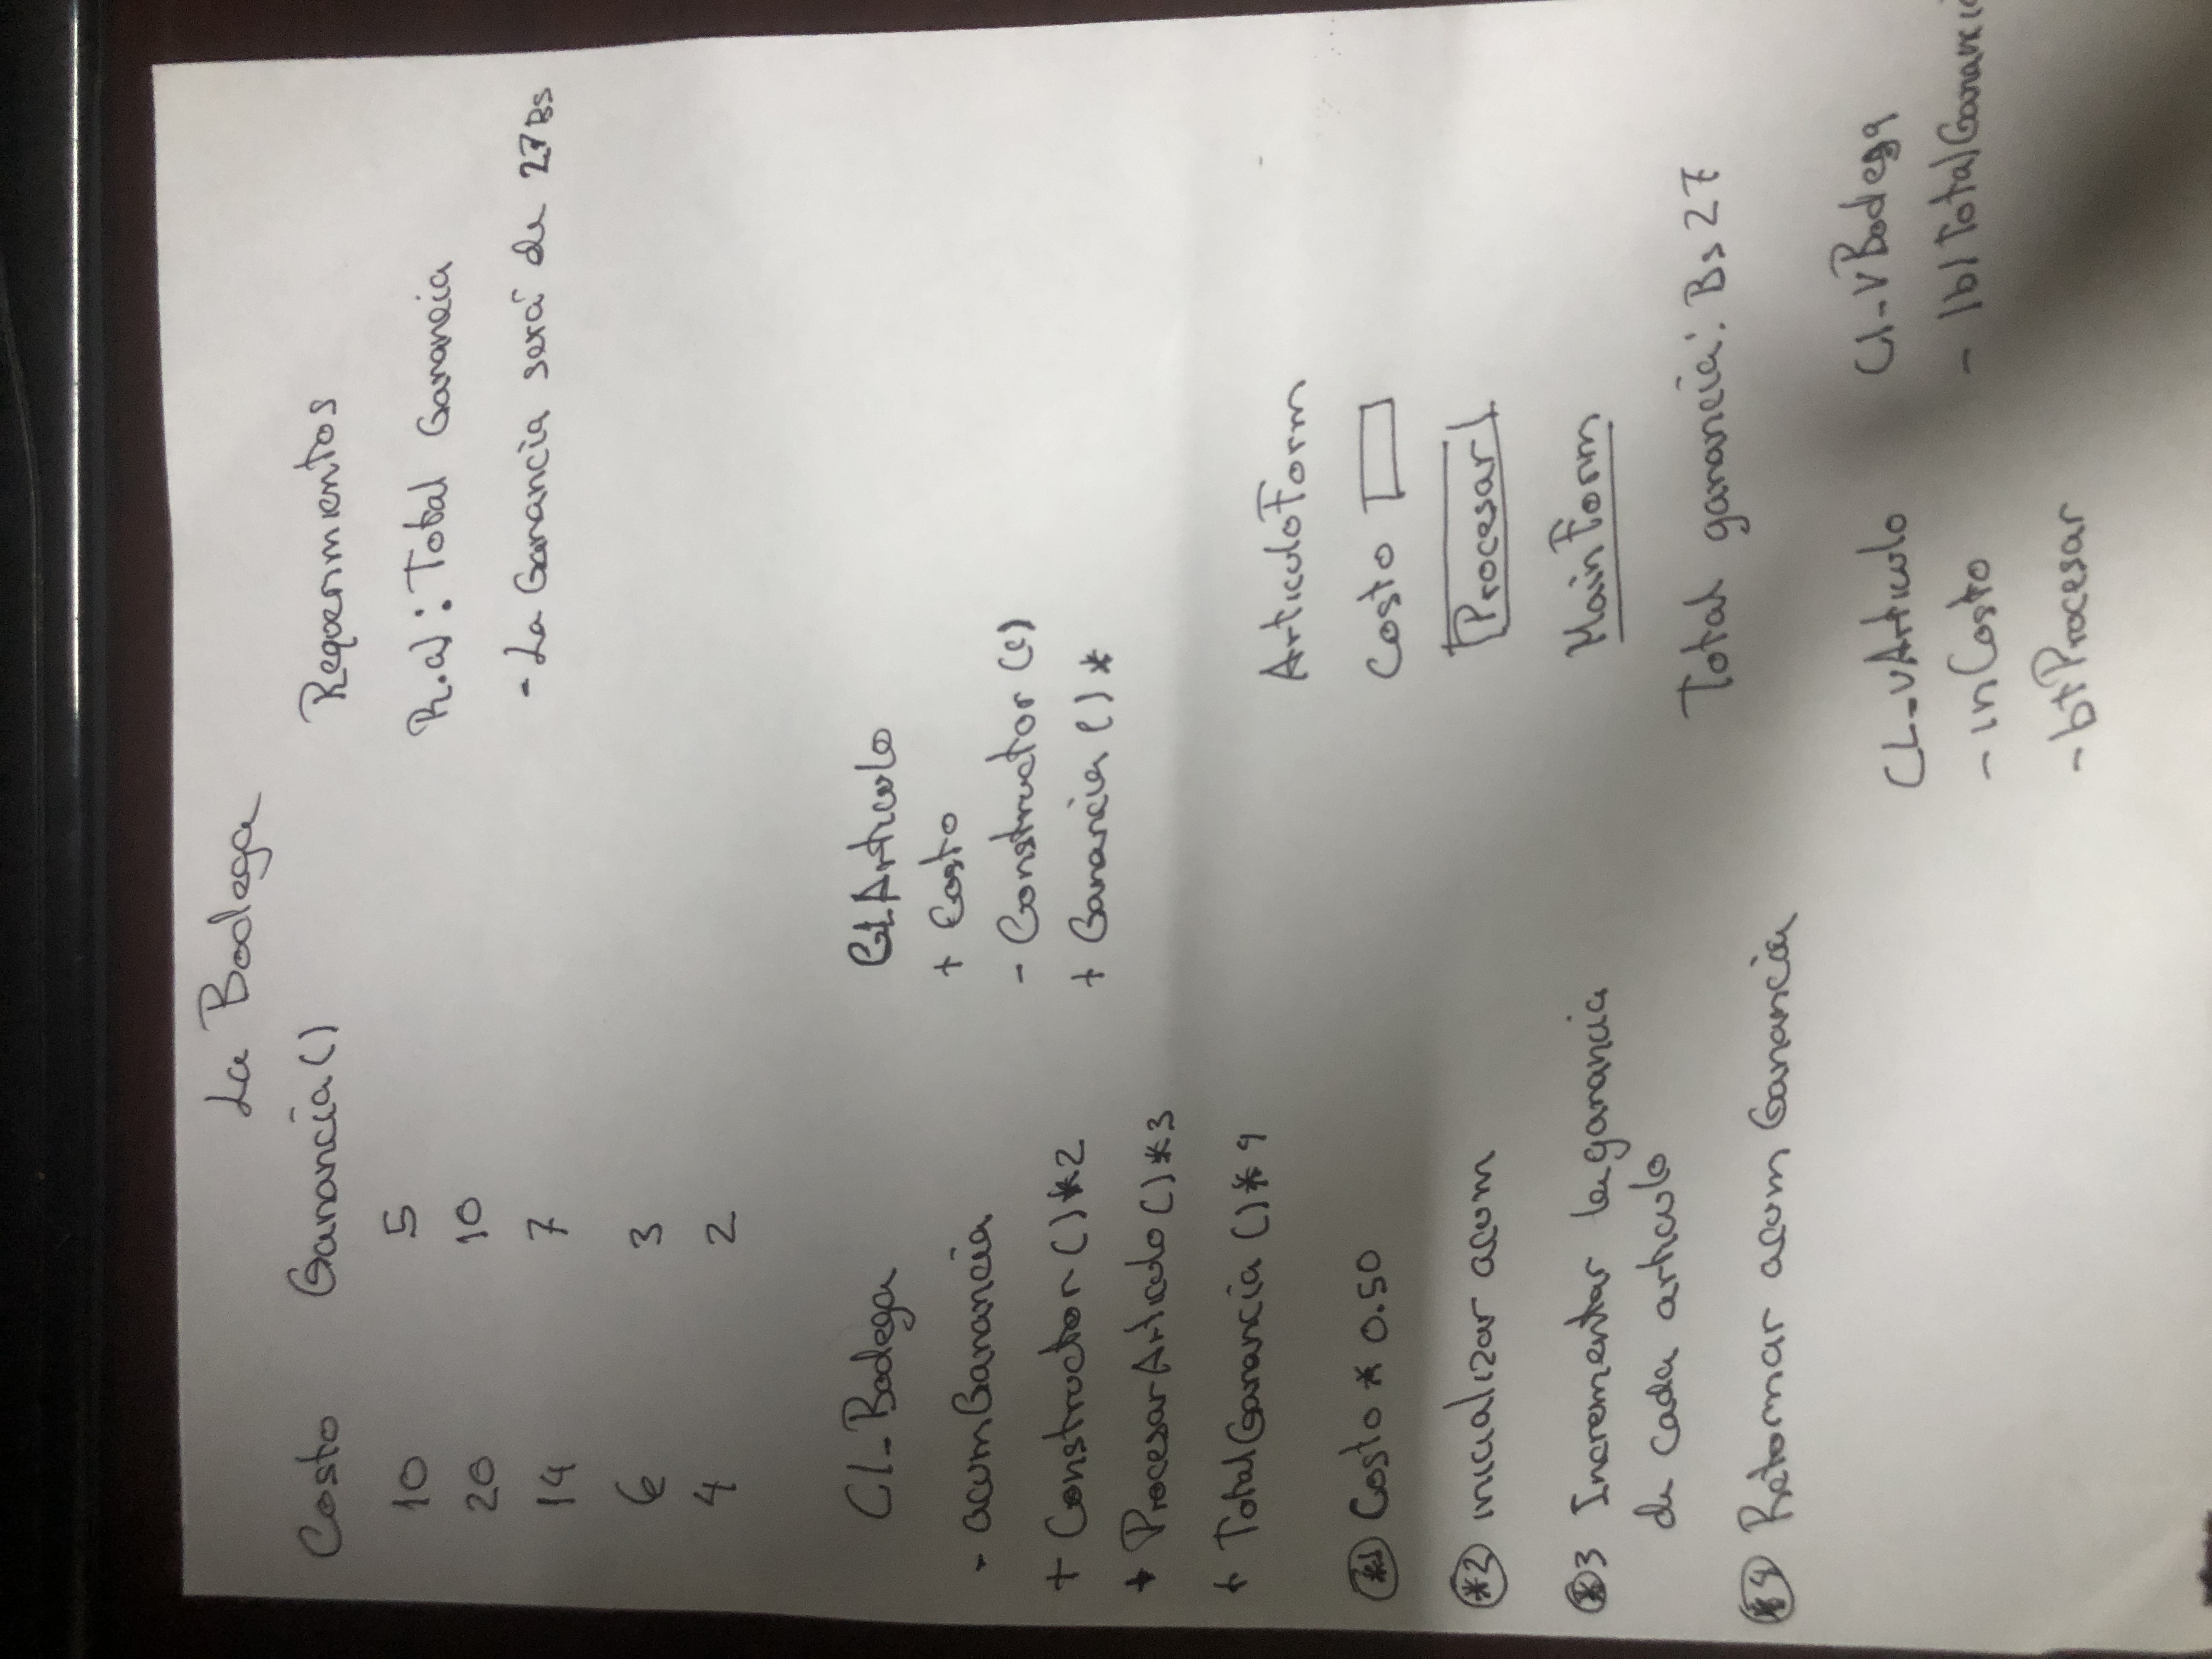 La Bodega
Costo Ganancia()
10 5
20 10
14 7
6 3
4 2
Requerimientos
R.a): Total Ganancia
- La Ganancia será de 27 Bs
Cl_Bodega
- acumGanancia
+ Constructor ()*2
+ ProcesarArticulo ()*3
+ TotalGanancia ()*4
Cl_Articulo
+ Costo
- Constructor (c)
+ Ganancia () *
*1 Costo * 0.50
*2 inicializar acum
*3 Incrementar la ganancia
de cada articulo
*4 Retornar acum Ganancia
ArticuloForm
Costo
Procesar
MainForm
Total ganancia: Bs 27
CL_vArticulo
- inCosto
- btProcesar
Cl_vBodega
- lblTotalGananci